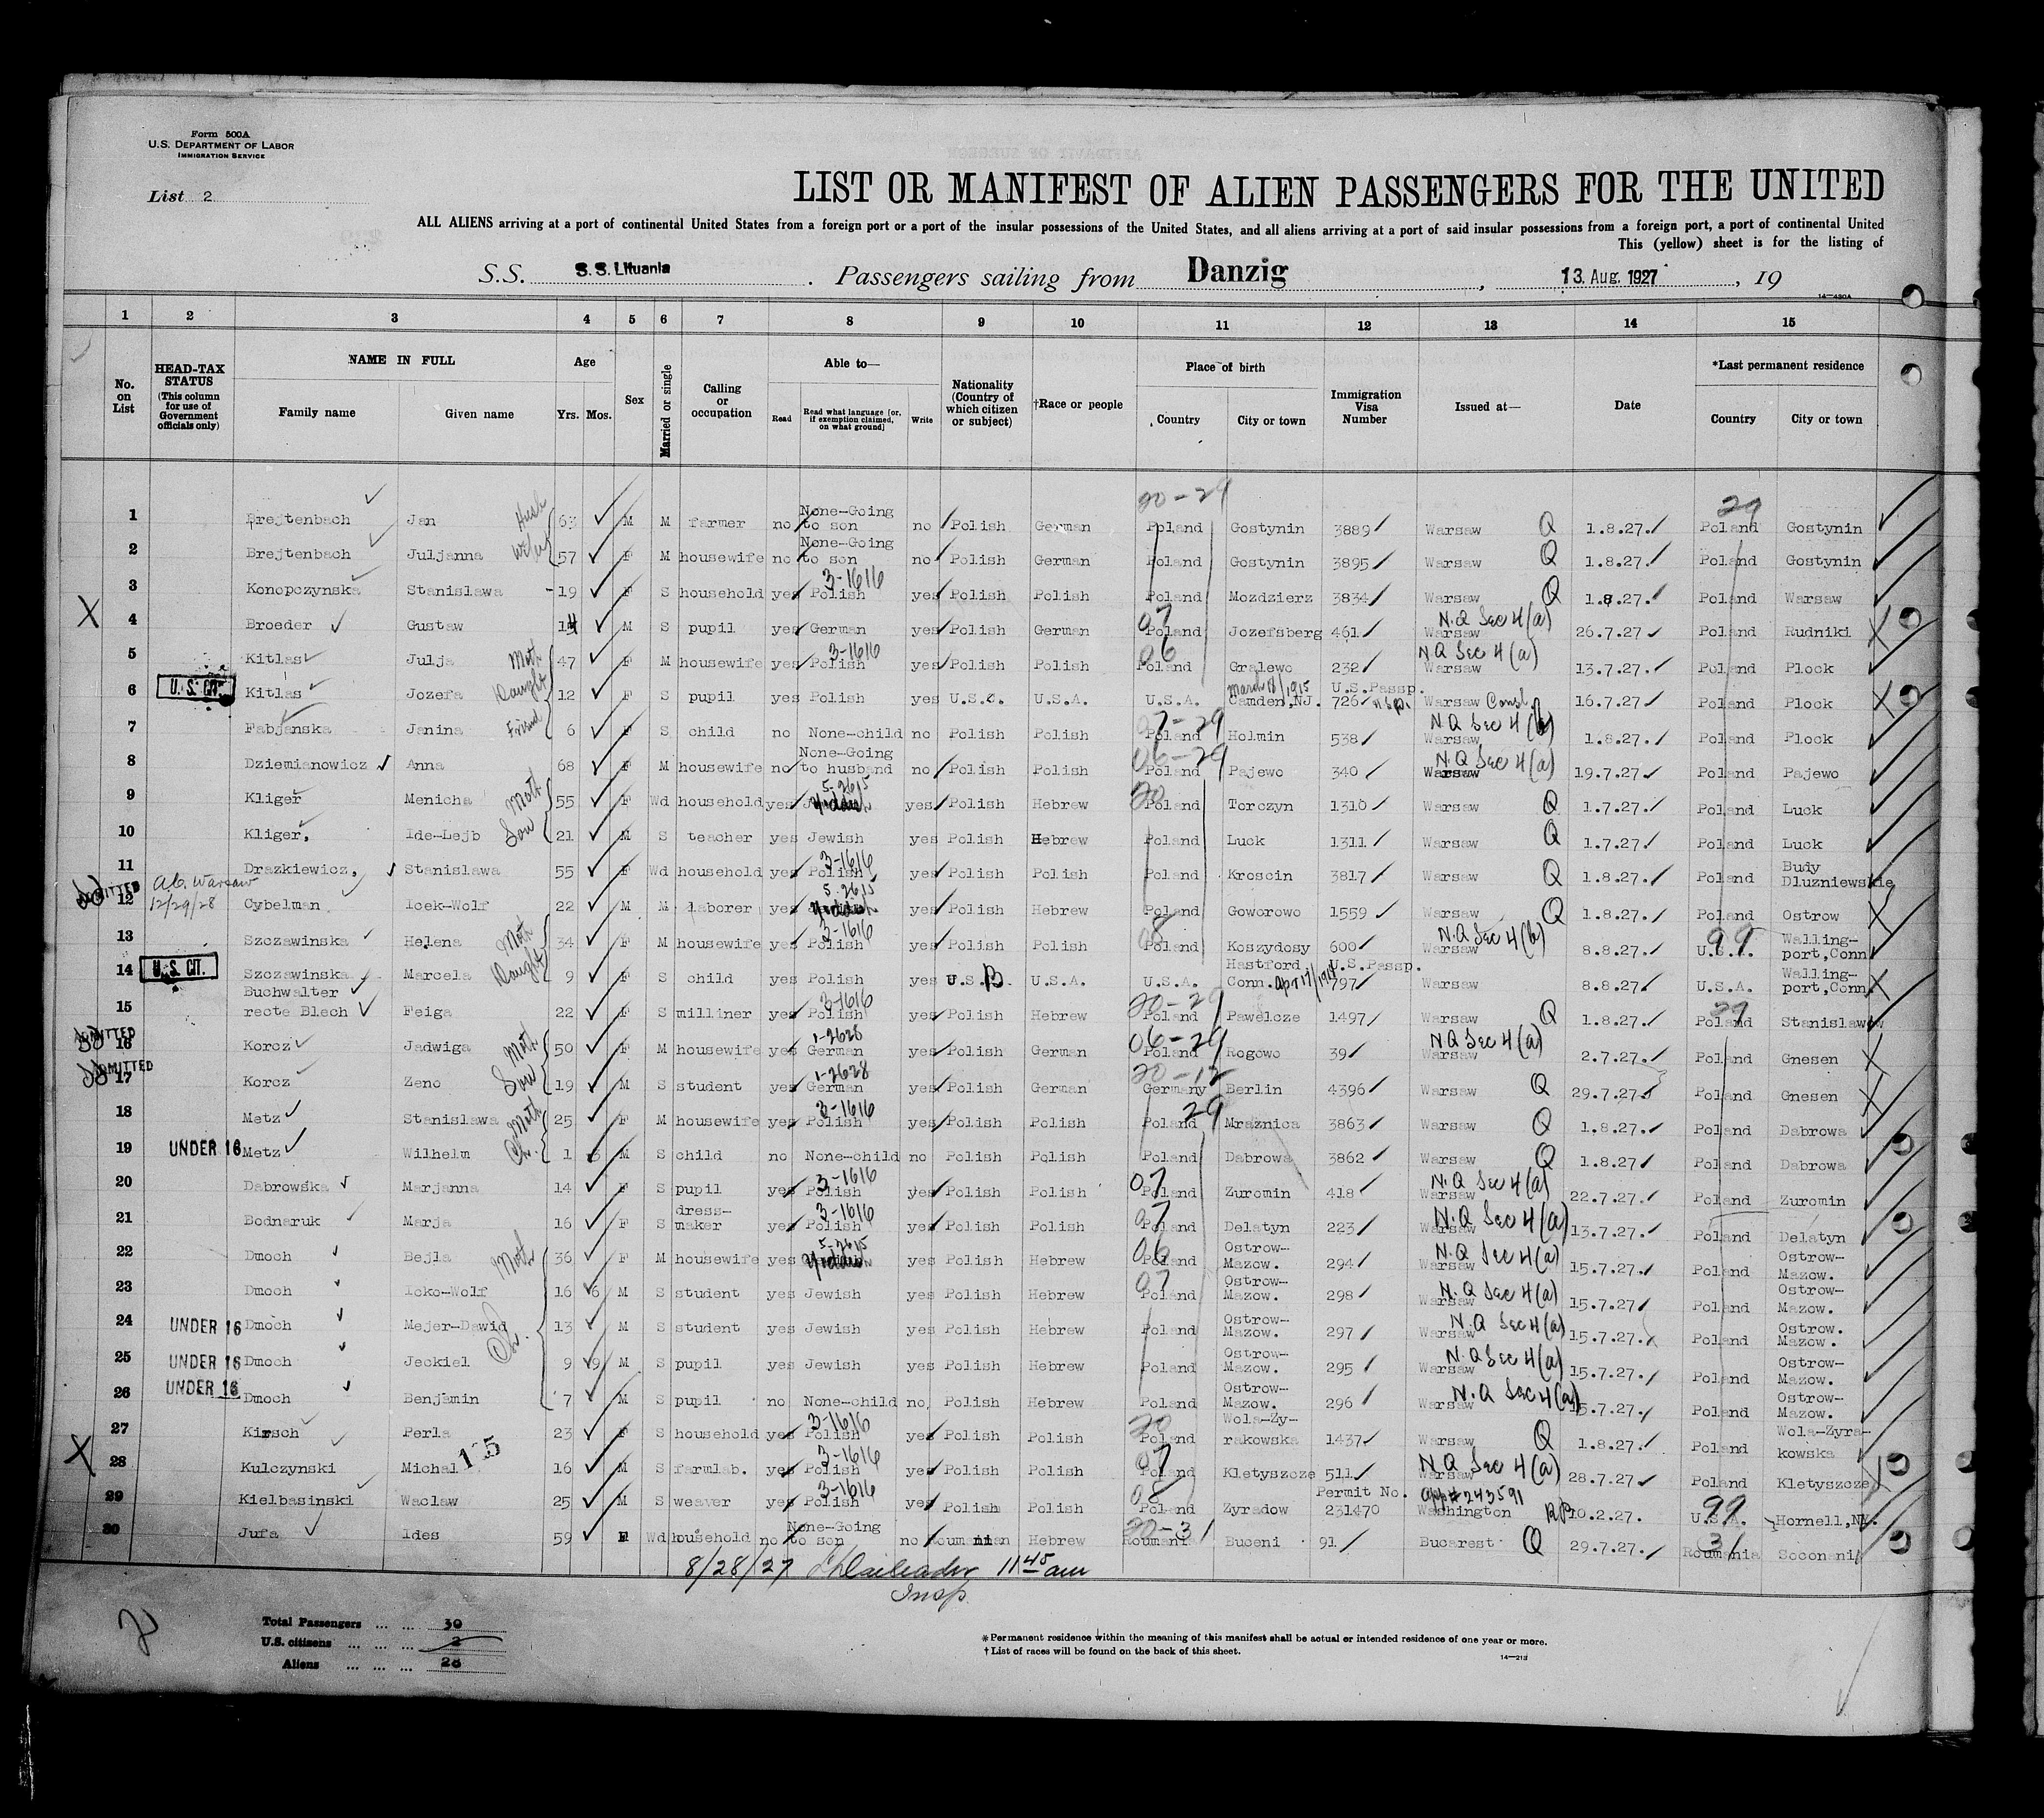 Form 500A
U.S. DEPARTMENT OF LABOR
IMMIGRATION SERVICE
List 2
LIST OR MANIFEST OF ALIEN PASSENGERS FOR THE UNITED
ALL ALIENS arriving at a port of continental United States from a foreign port or a port of the insular possessions of the United States, and all aliens arriving at a port of said insular possessions from a foreign port, a port of continental United
This (yellow) sheet is for the listing of
S.S. S.S. Lituania . Passengers sailing from Danzig , 13. Aug. 1927 , 19
14—430A
1 2 3 4 5 6 7 8 9 10 11 12 13 14 15
No. on List
HEAD-TAX STATUS (This column for use of Government officials only)
NAME IN FULL
Family name Given name
Age
Yrs. Mos.
Sex
Married or single
Calling or occupation
Able to—
Read Read what language [or, if exemption claimed, on what ground] Write
Nationality (Country of which citizen or subject)
†Race or people
Place of birth
Country City or town
Immigration Visa Number
Issued at—
Date
*Last permanent residence
Country City or town
20-29 29
1 Brejtenbach Jan Husb 63 M M farmer no None-Going to son no Polish German Poland Gostynin 3889 Warsaw Q 1.8.27. Poland Gostynin
2 Brejtenbach Juljanna Wife 57 F M housewife no None-Going to son no Polish German Poland Gostynin 3895 Warsaw Q 1.8.27. Poland Gostynin
3 Konopczynska Stanislawa 19 F S household yes Polish 3-1616 yes Polish Polish Poland Mozdzierz 3834 Warsaw Q 1.8.27. Poland Warsaw
X 4 Broeder Gustaw 14 M S pupil yes German yes Polish German 07 Poland Jozefsberg 461 Warsaw N.Q Sec 4(a) 26.7.27 Poland Rudniki X
5 Kitlas Julja Moth 47 F M housewife yes Polish 3-1616 yes Polish Polish 06 Poland Gralewo 232 Warsaw NQ Sec 4(a) 13.7.27 Poland Plock
6 U.S. CIT. Kitlas Jozefa Daught 12 F S pupil yes Polish yes U.S.A. U.S.A. U.S.A. March 18/1915 Camden,NJ. U.S.Passp. 726 Warsaw Consl. 16.7.27 Poland Plock X
7 Fabjanska Janina Friend 6 F S child no None-child no Polish Polish 07-29 Poland Holmin 538 Warsaw NQ Sec 4(a) 1.8.27. Poland Plock
8 Dziemianowicz Anna 68 F M housewife no None-Going to husband no Polish Polish 06-29 Poland Pajewo 340 Warsaw N.Q Sec 4(a) 19.7.27 Poland Pajewo
9 Kliger Menicha Moth 55 F Wd household yes 5-2615 Yiddish yes Polish Hebrew 20 Poland Torczyn 1310 Warsaw Q 1.7.27. Poland Luck
10 Kliger, Ide-Lejb Son 21 M S teacher yes Jewish yes Polish Hebrew Poland Luck 1311 Warsaw Q 1.7.27. Poland Luck
11 Drazkiewicz, Stanislawa 55 F Wd household yes Polish 3-1616 yes Polish Polish Poland Kroscin 3817 Warsaw Q 1.8.27. Poland Budy Dluzniewskie
ADMITTED 12 a.c. Warsaw 12/29/28 Cybelman Icek-Wolf 22 M M laborer yes 5-2615 Yiddish yes Polish Hebrew Poland Goworowo 1559 Warsaw Q 1.8.27. Poland Ostrow X
13 Szczawinska Helena Moth 34 F M housewife yes Polish 3-1616 yes Polish Polish 08 Poland Koszydosy 600 Warsaw N.Q Sec 4(b) 8.8.27. 99 U.S.A. Walling-port,Conn
14 U.S. CIT. Szczawinska Marcela Daught 9 F S child yes Polish yes U.S.A. U.S.A. U.S.A. Hastford Conn. U.S.Passp. 797 Warsaw 8.8.27. U.S.A. Walling-port,Conn. X
15 Buchwalter recte Blech Feiga 22 F S milliner yes Polish 3-1616 yes Polish Hebrew 20-29 Poland Pawelcze 1497 Warsaw Q 1.8.27. 29 Poland Stanislawow
ADMITTED 16 Korcz Jadwiga Moth 50 F M housewife yes German 1-2628 yes Polish German 06-29 Poland Rogowo 39 Warsaw NQ Sec 4(a) 2.7.27. Poland Gnesen X
ADMITTED 17 Korcz Zeno Son 19 M S student yes German 1-2628 yes Polish German 20-12 Germany Berlin 4396 Warsaw Q 29.7.27. Poland Gnesen X
18 Metz Stanislawa Moth 25 F M housewife yes Polish 3-1616 yes Polish Polish 29 Poland Mraznica 3863 Warsaw Q 1.8.27. Poland Dabrowa
19 UNDER 16 Metz Wilhelm Ch. 1 6 M S child no None-child no Polish Polish Poland Dabrowa 3862 Warsaw Q 1.8.27 Poland Dabrowa
20 Dabrowska Marjanna 14 F S pupil yes Polish 3-1616 yes Polish Polish 07 Poland Zuromin 418 Warsaw N.Q Sec 4(a) 22.7.27. Poland Zuromin
21 Bodnaruk Marja 16 F S dress-maker yes Polish 3-1616 yes Polish Polish 07 Poland Delatyn 223 Warsaw N.Q Sec 4(a) 13.7.27. Poland Delatyn
22 Dmoch Bejla Moth 36 F M housewife yes 5-2615 Yiddish yes Polish Hebrew 06 Poland Ostrow-Mazow. 294 Warsaw N.Q Sec 4(a) 15.7.27. Poland Ostrow-Mazow.
23 Dmoch Icko-Wolf 16 6 M S student yes Jewish yes Polish Hebrew 07 Poland Ostrow-Mazow. 298 Warsaw N.Q Sec 4(a) 15.7.27 Poland Ostrow-Mazow.
24 UNDER 16 Dmoch Mejer-Dawid Ch. 13 M S student yes Jewish yes Polish Hebrew Poland Ostrow-Mazow. 297 Warsaw N.Q Sec 4(a) 15.7.27. Poland Ostrow. Mazow.
25 UNDER 16 Dmoch Jeckiel 9 9 M S pupil yes Jewish yes Polish Hebrew Poland Ostrow-Mazow. 295 Warsaw N.Q Sec 4(a) 15.7.27. Poland Ostrow-Mazow.
26 UNDER 16 Dmoch Benjamin 7 M S pupil no None-child no, Polish Hebrew Poland Ostrow-Mazow. 296 Warsaw N.Q Sec 4(a) 15.7.27. Poland Ostrow-Mazow.
27 Kirsch Perla 23 F S household yes Polish 3-1616 yes Polish Polish 20 Poland Wola-Zy-rakowska 1437 Warsaw Q 1.8.27. Poland Wola-Zyra-kowska
X 28 Kulczynski Michal 16 M S farmlab. yes Polish 3-1616 yes Polish Polish 07 Poland Kletyszcze 511 Warsaw N.Q Sec 4(a) 28.7.27 Poland Kletyszcze X
29 Kielbasinski Waclaw 25 M S weaver yes Polish 3-1616 yes Polish Polish 08 Poland Zyradow Permit No. 231470 App # 243591 Washington RP 10.2.27. 99 U.S.A. Hornell,NY.
30 Jufa Ides 59 F Wd household no None-Going to son no Roumanian Hebrew 20-31 Roumania Buceni 91 Bucarest Q 29.7.27. 31 Roumania Soconani
8/28/27 11 45 am
Insp.
2
Total Passengers ... ... 30
U.S. citizens ... ... ... 2
Aliens ... ... ... 28
*Permanent residence within the meaning of this manifest shall be actual or intended residence of one year or more.
†List of races will be found on the back of this sheet.
14—213